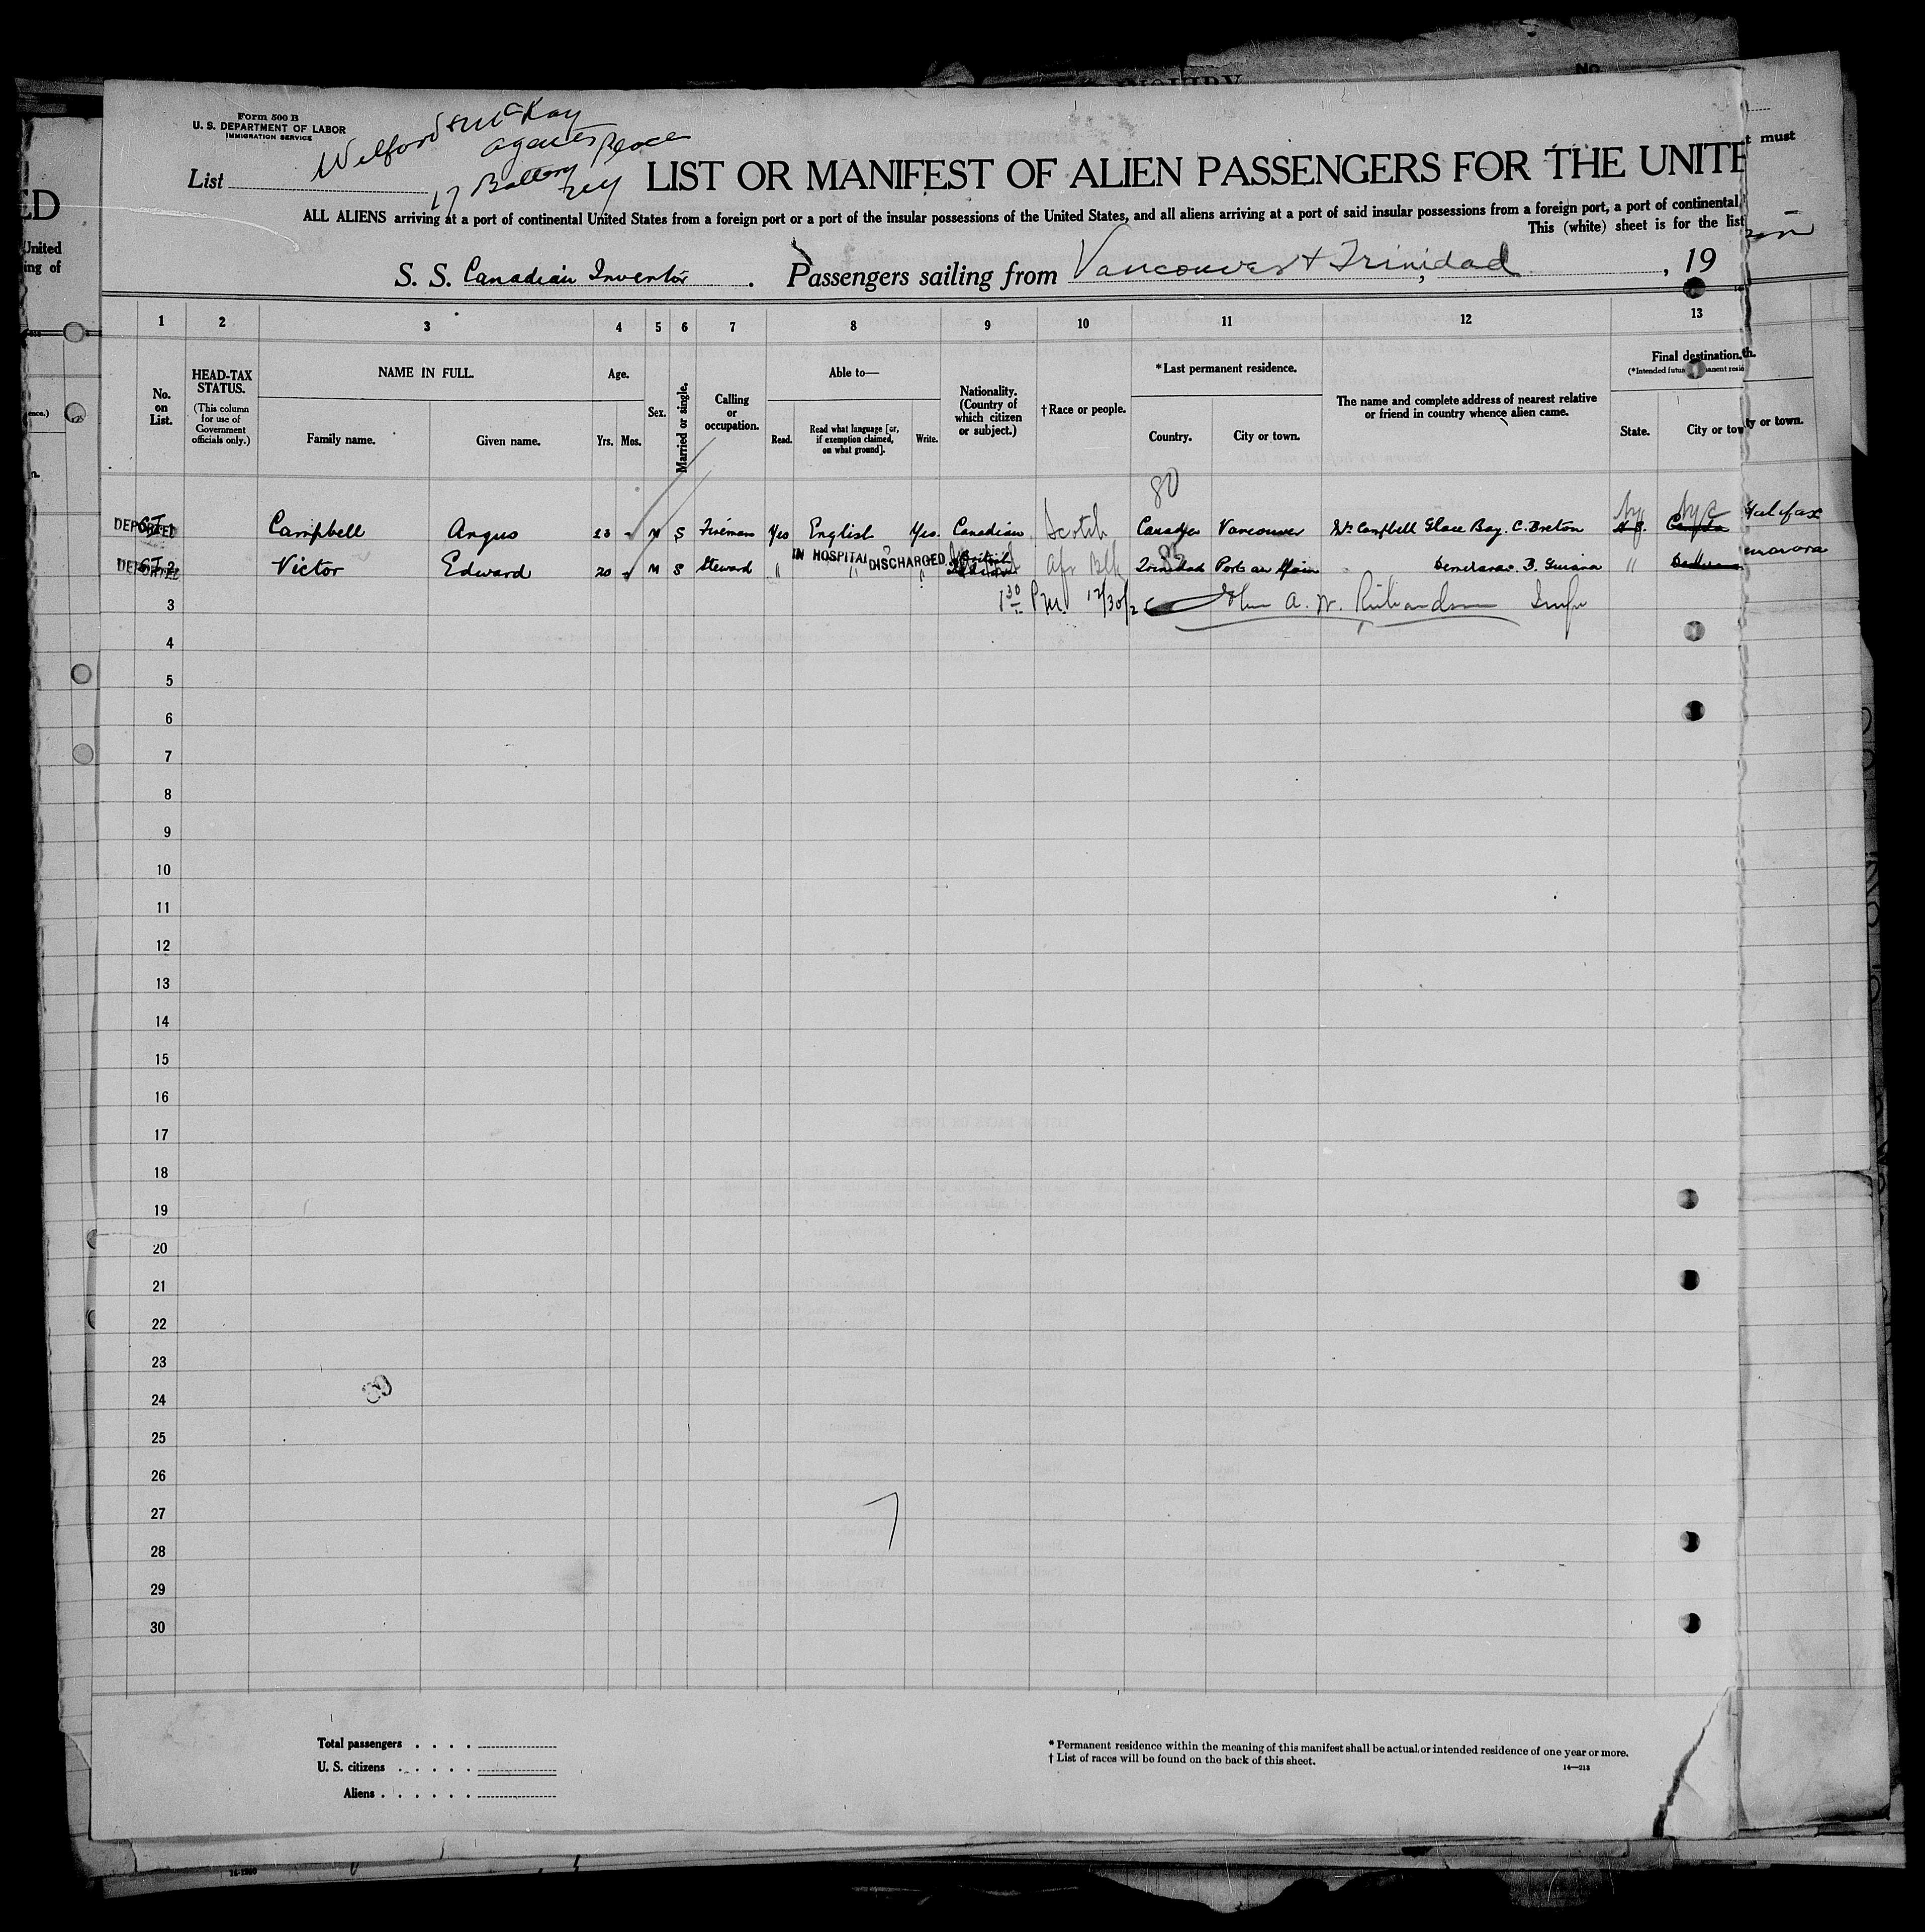 Form 500 B
U. S. DEPARTMENT OF LABOR
IMMIGRATION SERVICE
Wilford & McKay
agents
17 Battery Place
NY
List
LIST OR MANIFEST OF ALIEN PASSENGERS FOR THE UNITE
ALL ALIENS arriving at a port of continental United States from a foreign port or a port of the insular possessions of the United States, and all aliens arriving at a port of said insular possessions from a foreign port, a port of continental
This (white) sheet is for the list
S. S. Canadian Inventor. Passengers sailing from Vancouver & Trinidad, 19
1 2 3 4 5 6 7 8 9 10 11 12 13
No. on List.
HEAD-TAX STATUS.
(This column for use of Government officials only.)
NAME IN FULL.
Family name. Given name.
Age.
Yrs. Mos.
Sex.
Married or single.
Calling or occupation.
Able to—
Read. Read what language [or, if exemption claimed, on what ground]. Write.
Nationality. (Country of which citizen or subject.)
†Race or people.
*Last permanent residence.
Country. City or town.
The name and complete address of nearest relative or friend in country whence alien came.
Final destination.
State. City or tow
80
NY NYC
DEPORTED 1 Campbell Angus 23 - M S Fireman Yes English Yes. Canadian Scotch Canada Vancouver Wm Campbell Glace Bay. C. Breton N.S. Halifax
IN HOSPITAL DISCHARGED
DEPORTED 2 Victor Edward 20 - M S Steward " " " British Afr Blk Trinidad Port au Spain Demerara. B. Guiana "
3 1 30 P.M. 12/30/2 John A. W. Richardson Insp
4
5
6
7
8
9
10
11
12
13
14
15
16
17
18
19
20
21
22
23
24
25
26
27
28
29
30
Total passengers . . . .
U. S. citizens . . . . .
Aliens . . . . . .
* Permanent residence within the meaning of this manifest shall be actual or intended residence of one year or more.
† List of races will be found on the back of this sheet.
14—213
ED
United
ing of
t must
ty or town.